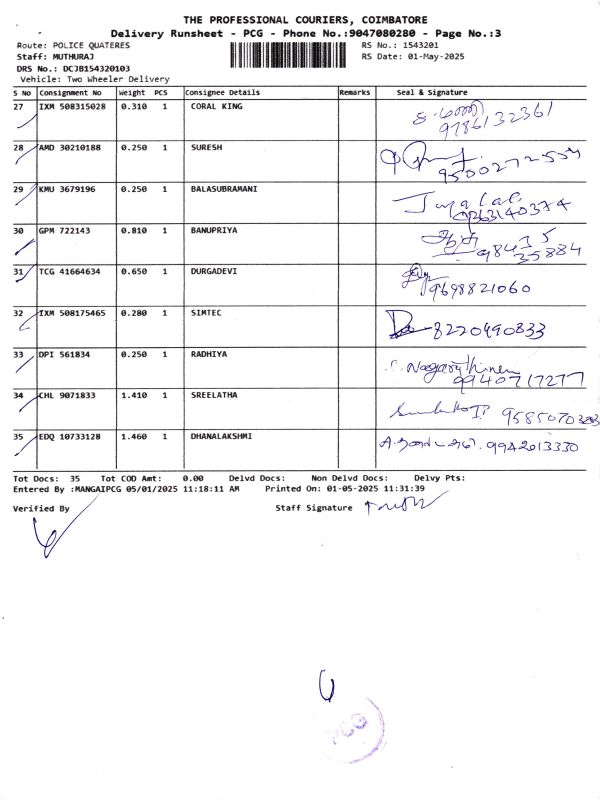 THE PROFESSIONAL COURIERS, COIMBATORE
Delivery Runsheet - PCG - Phone No.:9047080280 - Page No.:3
Route: POLICE QUATERES RS No.: 1543201
Staff: MUTHURAJ RS Date: 01-May-2025
DRS No.: DCJB154320103
Vehicle: Two Wheeler Delivery
S No Consignment No Weight PCS Consignee Details Remarks Seal & Signature
27 IXM 508315028 0.310 1 CORAL KING
9786132361
28 AMD 30210188 0.250 1 SURESH
29 KMU 3679196 0.250 1 BALASUBRAMANI
30 GPM 722143 0.810 1 BANUPRIYA
98435
35884
31 TCG 41664634 0.650 1 DURGADEVI
9698821060
32 IXM 508175465 0.280 1 SIMTEC
8220490833
33 DPI 561834 0.250 1 RADHIYA
9940717277
34 CHL 9071833 1.410 1 SREELATHA
35 EDQ 10733128 1.460 1 DHANALAKSHMI
9942013330
Tot Docs: 35 Tot COD Amt: 0.00 Delvd Docs: Non Delvd Docs: Delvy Pts:
Entered By :MANGAIPCG 05/01/2025 11:18:11 AM Printed On: 01-05-2025 11:31:39
Verified By Staff Signature
PCG